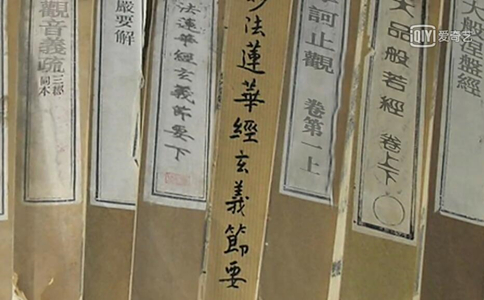 觀音義疏
三郷
同本
嚴要解
法蓮華經玄義節要下
妙法蓮華經玄義節要
摩訶止觀 卷第一上
大品般若經 卷上下
大般涅盤經
iQIYI 爱奇艺